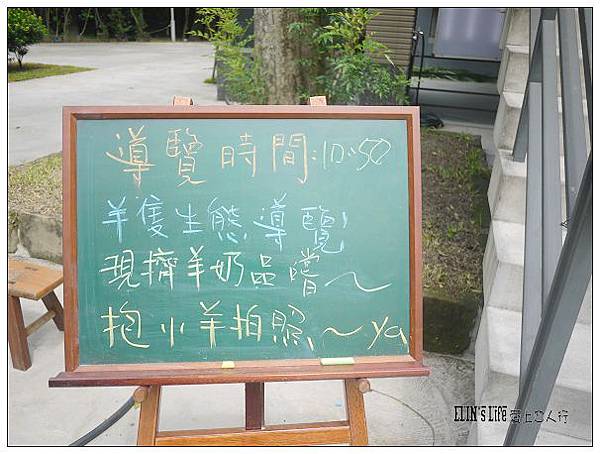 導覽時間:10:50
羊隻生態導覽
現擠羊奶品嚐～
抱小羊拍照～ya
ELIN's Life 愛上ㄞ人行